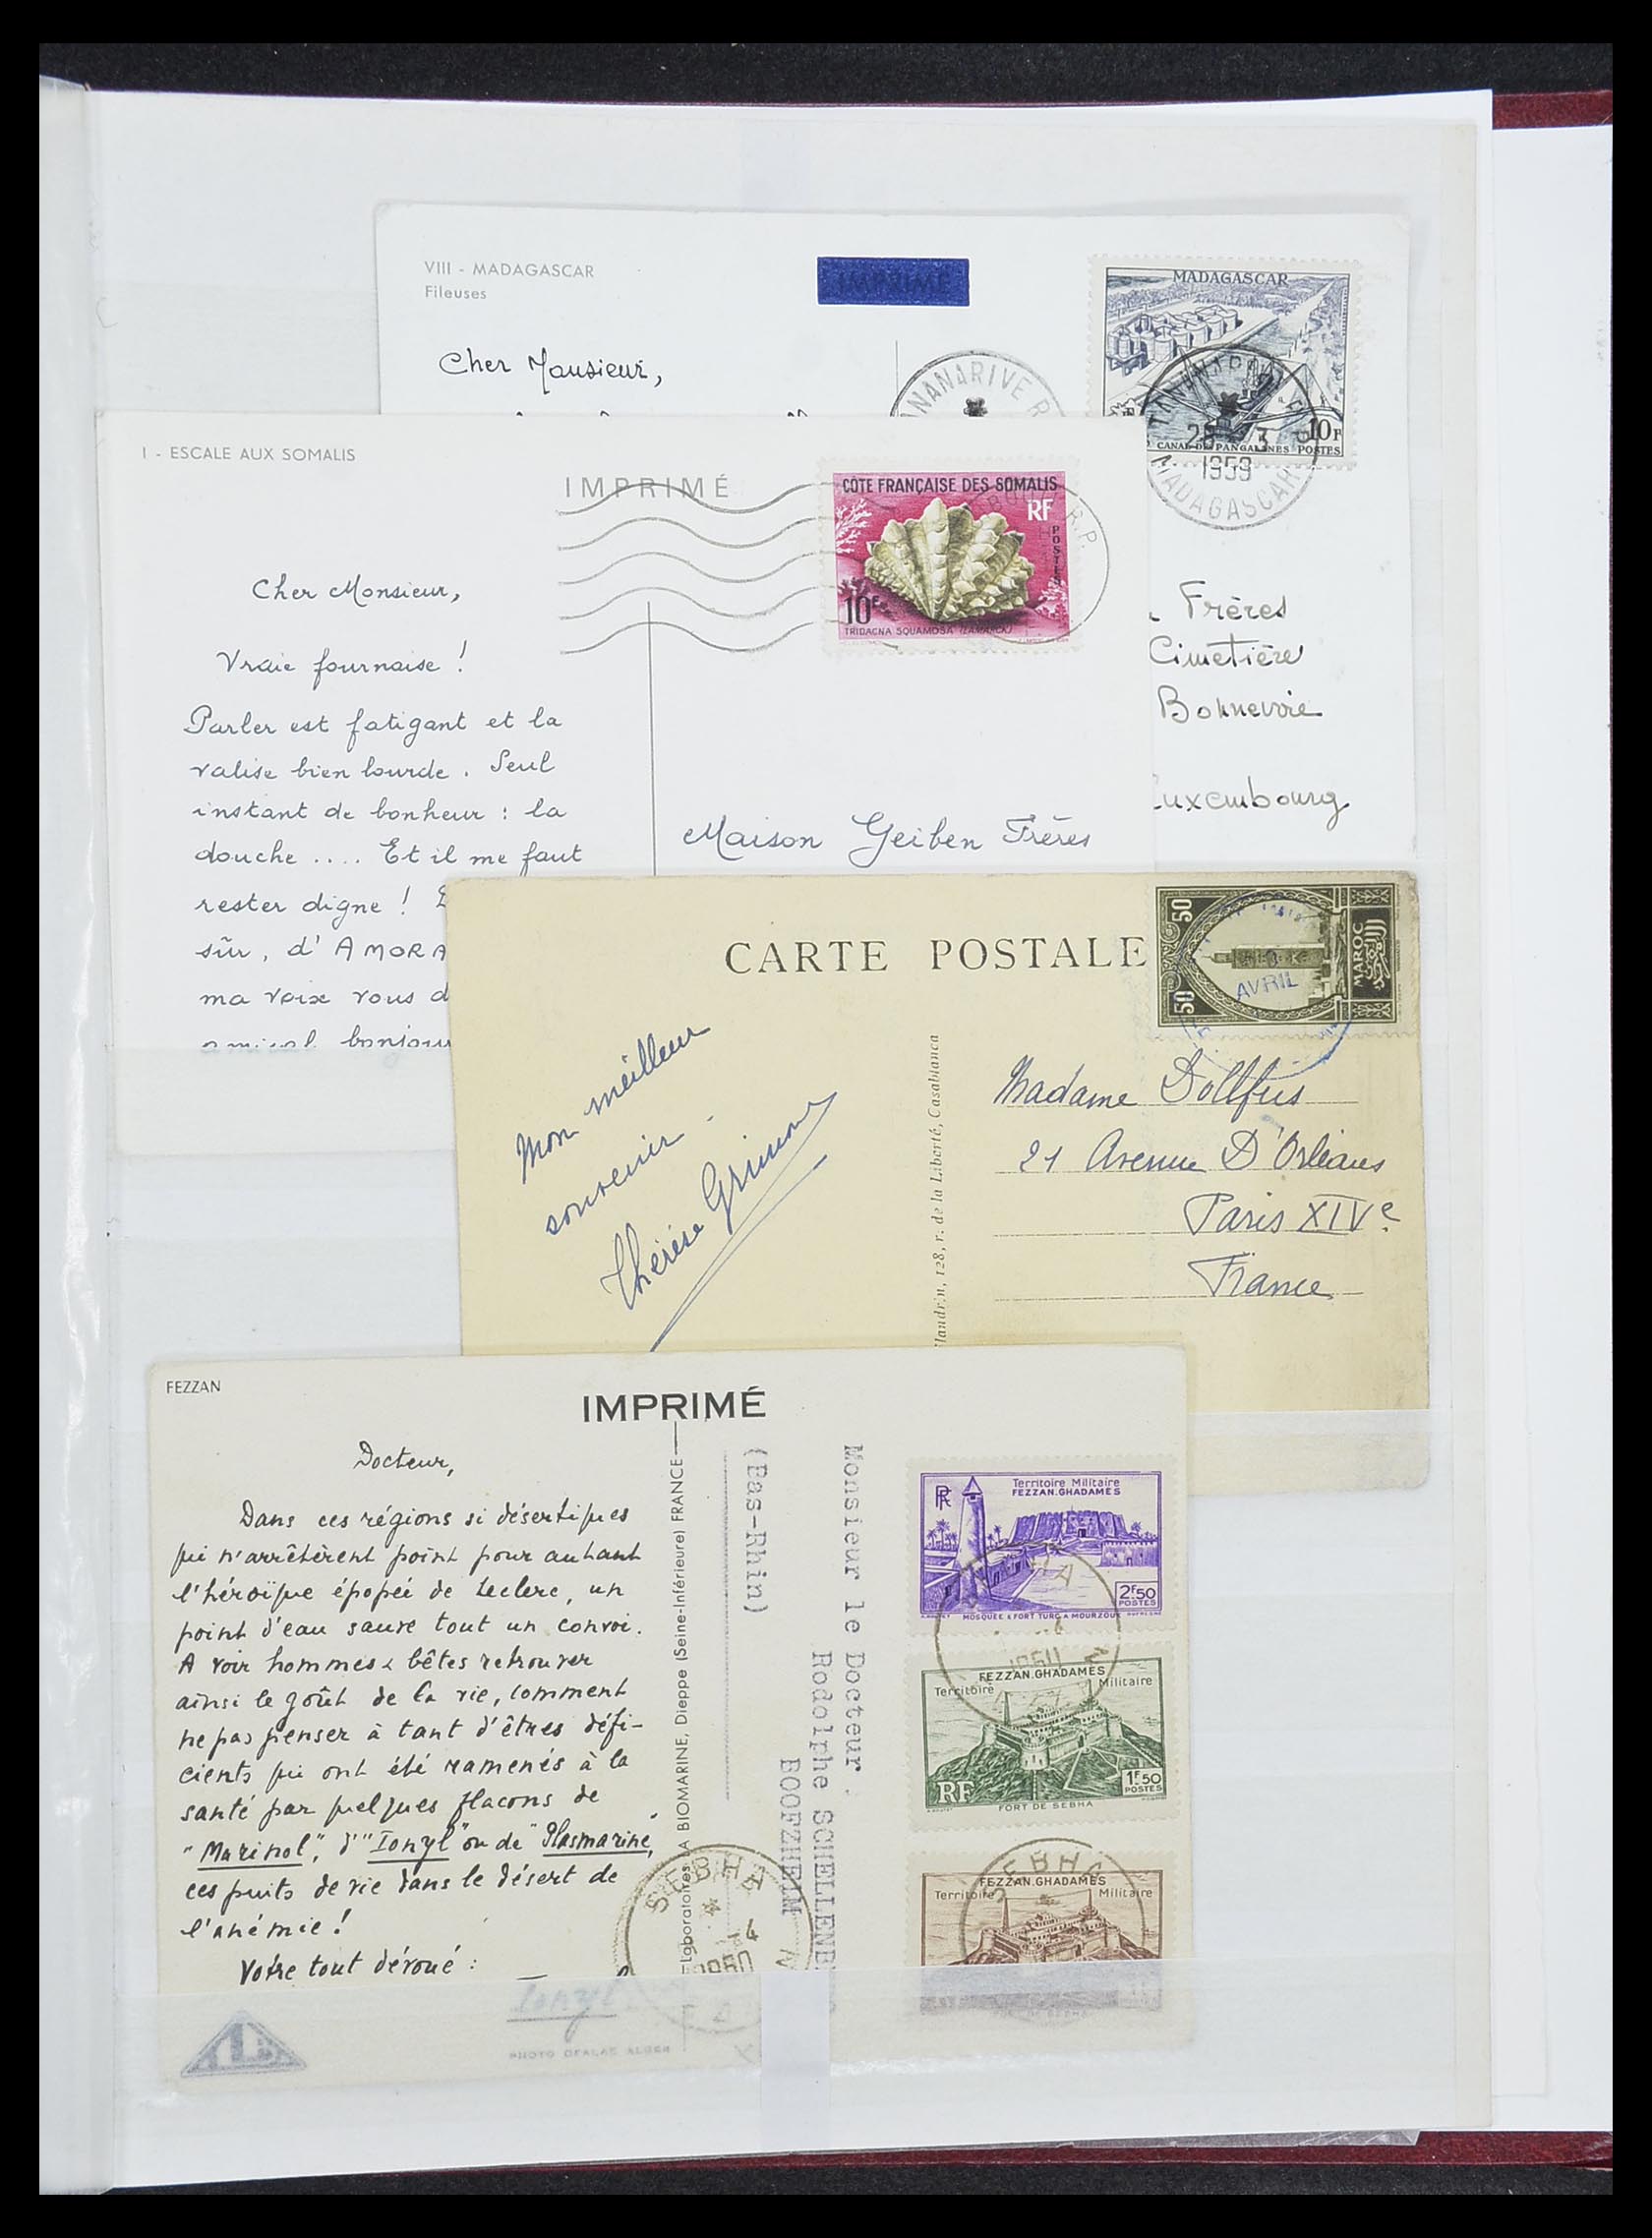 VIII - MADAGASCAR
Fileuses
IMPRIMÉ
Cher Monsieur,
MADAGASCAR
10F
CANAL DES PANGALANES POSTES
TANANARIVE R.P.
28-3
1959
MADAGASCAR
Frères
Cimetière
Bonnevoie
Luxembourg
I - ESCALE AUX SOMALIS
IMPRIMÉ
CÔTE FRANÇAISE DES SOMALIS
RF
POSTES
10F
TRIDACNA SQUAMOSA (LAMARCK)
R.P.
Cher Monsieur,
Vraie fournaise !
Parler est fatigant et la
valise bien lourde. Seul
instant de bonheur : la
douche .... Et il me faut
rester digne !
sûr, d'AMORA
ma voix vous d
amical bonjour
Maison Geiben Frères
CARTE POSTALE
50
50
MAROC
AVRIL
Mon meilleur
souvenir.
Thérèse Grimou
Flandrin, 128, r. de la Liberté, Casablanca
Madame Dollfus
21 Avenue D'Orléans
Paris XIVe
France
FEZZAN
IMPRIMÉ
Docteur,
Dans ces régions si désertiques
qui n'arrêtèrent point pour autant
l'héroïque épopée de Leclerc, un
point d'eau sauve tout un convoi.
A voir hommes & bêtes retrouver
ainsi le goût de la vie, comment
ne pas penser à tant d'êtres défi-
cients qui ont été ramenés à la
santé par quelques flacons de
"Marinol", d'"Ionyl" ou de "Plasmarine",
ces puits de vie dans le désert de
l'anémie !
Votre tout dévoué :
Ionyl
PHOTO OFALAC ALGER
Laboratoires LA BIOMARINE, Dieppe (Seine-Inférieure) FRANCE
Monsieur le Docteur
Rodolphe SCHELLENB
BOOFZHEIM
(Bas-Rhin)
SEBHA
-4
1950
RF
Territoire Militaire
FEZZAN.GHADAMÈS
2F50
POSTES
MOSQUÉE & FORT TURC A MOURZOUK
FEZZAN.GHADAMÈS
Territoire Militaire
RF
1F50
POSTES
FORT DE SEBHA
SEBHA
FEZZAN.GHADAMÈS
Territoire Militaire